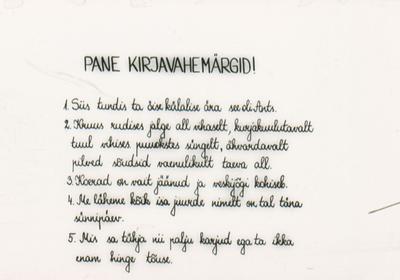 PANE KIRJAVAHEMÄRGID!
1. Siis tundis ta öise külalise ära see oli Ants.
2. Kruus rudises jalge all vihaselt, kurjakuulutavalt
tuul vihises puuokstes süngelt, ähvardavalt
pilved sõudsid vaenulikult taeva all.
3. Koerad on vait jäänud ja veskijõgi kohiseb.
4. Me läheme kõik isa juurde nimelt on tal täna
sünnipäev.
5. Mis sa tühja nii palju karjud ega ta ikka
enam hinge tõuse.